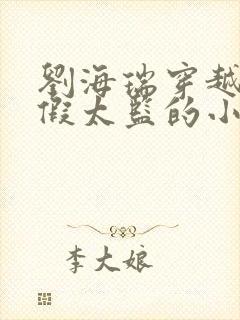 劉海瑞穿越
假太監的小
李大娘